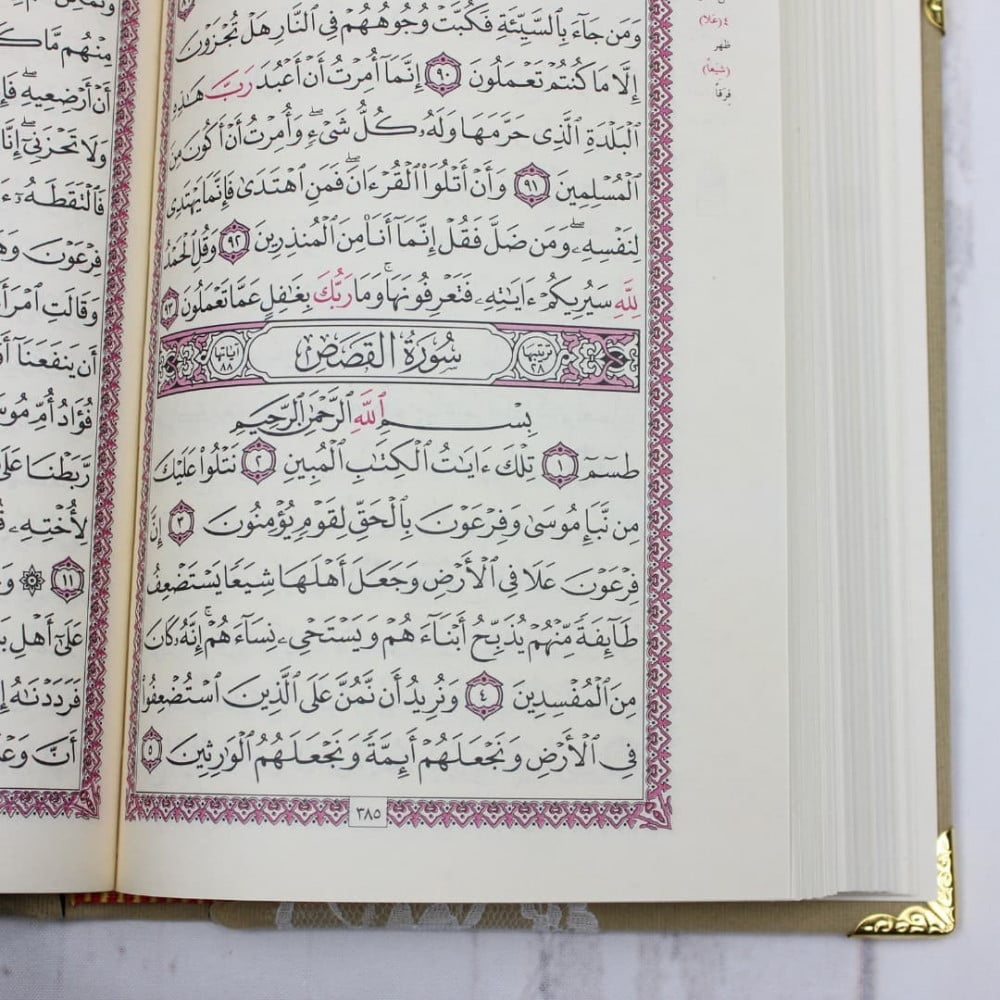 وَمَن جَآءَ بِٱلسَّيِّئَةِ فَكُبَّتْ وُجُوهُهُمْ فِي ٱلنَّارِ هَلْ تُجْزَوْنَ
إِلَّا مَا كُنتُمْ تَعْمَلُونَ ٩٠ إِنَّمَآ أُمِرْتُ أَنْ أَعْبُدَ رَبَّ هَٰذِهِ
ٱلْبَلْدَةِ ٱلَّذِي حَرَّمَهَا وَلَهُۥ كُلُّ شَىْءٍۖ وَأُمِرْتُ أَنْ أَكُونَ مِنَ
ٱلْمُسْلِمِينَ ٩١ وَأَنْ أَتْلُوَا۟ ٱلْقُرْءَانَۖ فَمَنِ ٱهْتَدَىٰ فَإِنَّمَا يَهْتَدِى
لِنَفْسِهِۦۖ وَمَن ضَلَّ فَقُلْ إِنَّمَآ أَنَا۠ مِنَ ٱلْمُنذِرِينَ ٩٢ وَقُلِ ٱلْحَمْدُ
لِلَّهِ سَيُرِيكُمْ ءَايَٰتِهِۦ فَتَعْرِفُونَهَاۚ وَمَا رَبُّكَ بِغَٰفِلٍ عَمَّا تَعْمَلُونَ ٩٣
ترتيبها ٢٨ سُورَةُ القَصَصِ آياتها ٨٨
بِسْمِ ٱللَّهِ ٱلرَّحْمَٰنِ ٱلرَّحِيمِ
طسٓمٓ ١ تِلْكَ ءَايَٰتُ ٱلْكِتَٰبِ ٱلْمُبِينِ ٢ نَتْلُوا۟ عَلَيْكَ
مِن نَّبَإِ مُوسَىٰ وَفِرْعَوْنَ بِٱلْحَقِّ لِقَوْمٍ يُؤْمِنُونَ ٣ إِنَّ
فِرْعَوْنَ عَلَا فِي ٱلْأَرْضِ وَجَعَلَ أَهْلَهَا شِيَعًا يَسْتَضْعِفُ
طَآئِفَةً مِّنْهُمْ يُذَبِّحُ أَبْنَآءَهُمْ وَيَسْتَحْىِۦ نِسَآءَهُمْۚ إِنَّهُۥ كَانَ
مِنَ ٱلْمُفْسِدِينَ ٤ وَنُرِيدُ أَن نَّمُنَّ عَلَى ٱلَّذِينَ ٱسْتُضْعِفُوا۟
فِي ٱلْأَرْضِ وَنَجْعَلَهُمْ أَئِمَّةً وَنَجْعَلَهُمُ ٱلْوَٰرِثِينَ ٥
٣٨٥
٤ (عَلَا)
ظهر
(شِيَعاً)
فِرَقاً
مِنْهُم مَّا
أَنْ أَرْضِعِيهِۖ
وَلَا تَحْزَنِىٓۖ إِنَّا
فَٱلْتَقَطَهُۥٓ
فِرْعَوْنَ
وَقَالَتِ ٱمْرَأَ
أَن يَنفَعَنَآ
فُؤَادُ أُمِّ مُوسَ
رَّبَطْنَا عَلَىٰ
لِأُخْتِهِۦ
١١
عَلَىٰٓ أَهْلِ
فَرَدَدْنَٰهُ
أَنَّ وَعْدَ